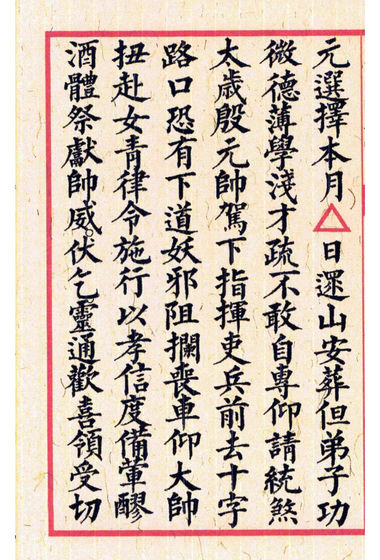 元選擇本月△日還山安葬但弟子功
微德薄學淺才疏不敢自專仰請統煞
太歲殷元帥駕下指揮吏兵前去十字
路口恐有下道妖邪阻攔喪車仰大帥
扭赴女青律令施行以孝信度備葷醪
酒體祭獻帥威伏乞靈通歡喜領受切